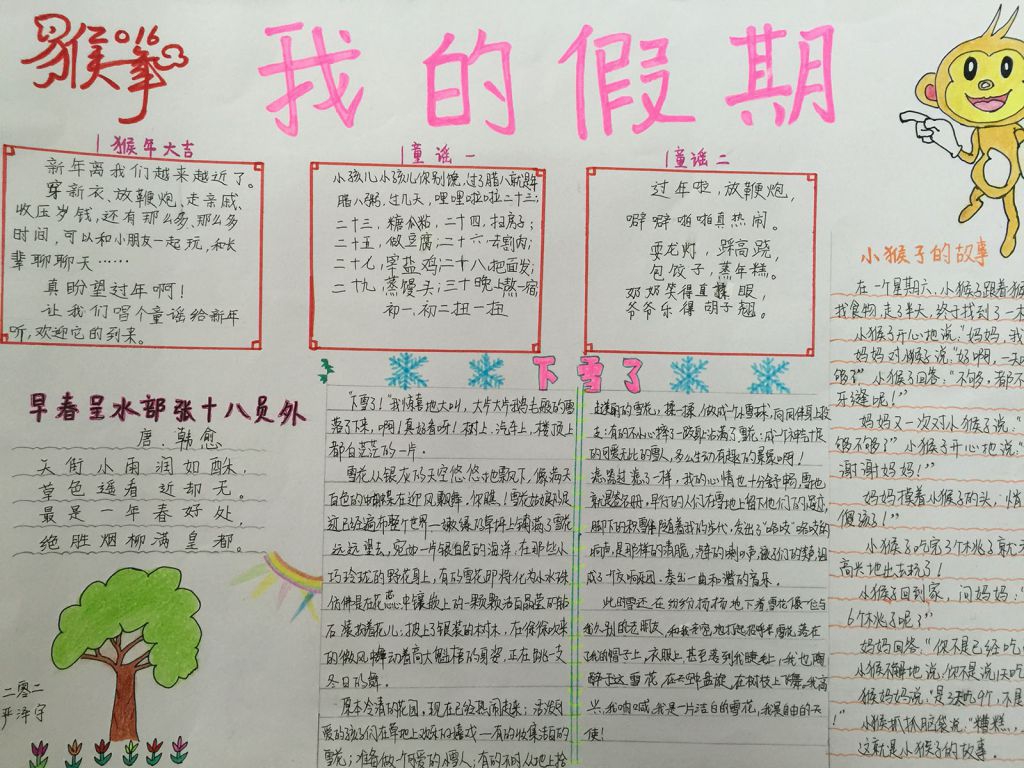 猴
2016
我的假期
猴年大吉
新年离我们越来越近了。
穿新衣、放鞭炮、走亲戚、
收压岁钱,还有那么多、那么多
时间,可以和小朋友一起玩,和长
辈聊聊天……
真盼望过年啊!
让我们唱个童谣给新年
听,欢迎它的到来。
童谣一
小孩儿小孩儿你别馋,过了腊八就是年
腊八粥,过几天,哩哩啦啦二十三;
二十三,糖瓜粘,二十四,扫房子;
二十五,做豆腐;二十六去割肉;
二十七,宰盐鸡;二十八,把面发;
二十九,蒸馒头;三十晚上熬一宿
初一、初二扭一扭
童谣二
过年啦,放鞭炮,
噼噼啪啪真热闹。
耍龙灯,踩高跷,
包饺子,蒸年糕。
奶奶笑得直揉眼,
爷爷乐得胡子翘。
早春呈水部张十八员外
唐.韩愈
天街小雨润如酥,
草色遥看近却无。
最是一年春好处,
绝胜烟柳满皇都。
二零二
严泽宇
下雪了
"下雪了!"我惊喜地大叫,大片大片鹅毛般的雪
落了下来,啊!真好看呀!树上、汽车上,楼顶上
都白茫茫的一片。
雪花从银灰的天空悠悠地飘下,像满天
白色的蝴蝶在迎风飘舞,你瞧!雪花
已经遍布整个世界一嫩绿的草坪上铺满了雪花
远远望去,宛如一片银白色的海洋,在那些小
巧玲珑的野花身上,有的雪花即将化为小水珠
仿佛是在花蕊中镶嵌上的一颗颗洁白晶莹的钻
石装扮着花儿;披上了银装的树木,在徐徐吹来
的微风中舞动着高大魁梧的身姿,正在跳一支
冬日的舞。
原本冷清的花园,现在已经热闹起来;活泼可
爱的孩子们在草地上欢乐的嬉戏—有的收集洁白的
雪花;准备做一个可爱的小雪人;有的不时从地上拾
的雪花,揉一揉,做成个小雪球,向同伴身上投
去;有的不小心摔了一跤身上沾满了雪花;成个神气十足
的可爱无比的雪人,多么生动有趣的景象啊!
我的心情也十分舒畅,雪地
早行的人们在雪地上留下他们的足迹,
脚下的积雪伴随着我的步代,发出了"咯吱"咯吱的
响声,是那样的清脆,汽车的喇叭声,孩子们的笑声,组
成了个交响乐团,奏出一曲和谐的音乐。
此时雪还在纷纷扬扬地下着雪花像一位与
我久别的老朋友,和我亲密地打起招呼来雪花落在
我的帽子上,衣服上,甚至落到我睫毛上,我也陶
醉于这雪花,在天空盘旋,在树枝上飞舞,我高
兴,我呐喊,我是一片洁白的雪花,我是自由的天
使!
小猴子的故事
在一个星期六,小猴子跟着猴
找食物,走了半天,终于找到了一木
小猴子开心地说:"妈妈,我
妈妈对小猴子说:"好啊,一天
够了"小猴子回答:"不够,都不
牙缝呢!"
妈妈又一次对小猴子说:"
够不够了"小猴子开心地说:
谢谢妈妈!"
妈妈摸着小猴子的头,"
傻孩子!"
小猴子吃完了个桃子就
高兴地出去玩了!
小猴子回到家,问妈妈:"
6个桃子呢?"
妈妈回答:"你不是已经吃
小猴不解地说:你不是说1天吃
猴妈妈说:"是1天吃9个,不是
!"小猴抓抓脑袋说:"糟糕,
这就是小猴子的故事.